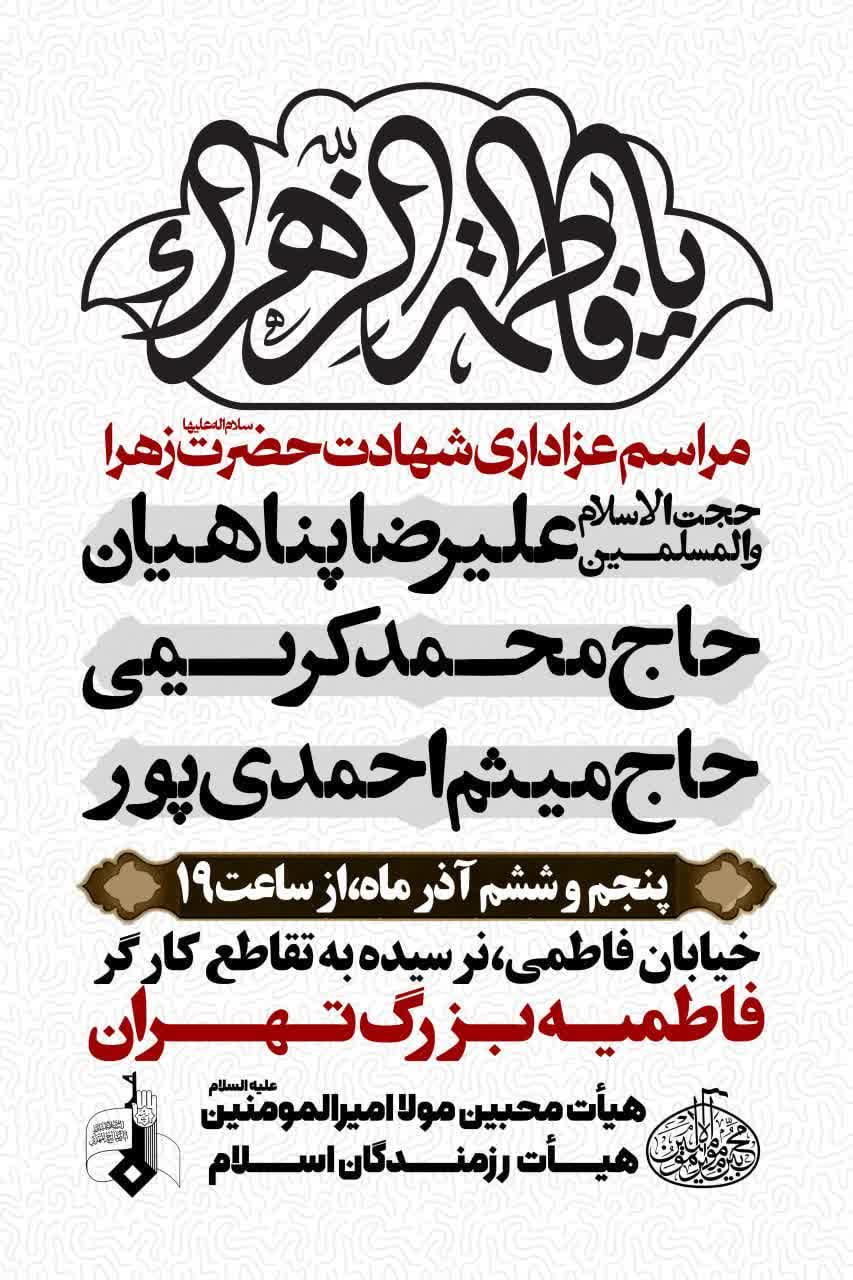 یا فاطمة الزهراء
مراسم عزاداری شهادت حضرت زهرا سلام‌اله‌علیها
حجت الاسلام والمسلمین علیرضا پناهیان
حاج محمد کریمی
حاج میثم احمدی پور
پنجم و ششم آذر ماه، از ساعت ۱۹
خیابان فاطمی، نرسیده به تقاطع کارگر
فاطمیه بزرگ تهران
هیأت محبین مولا امیرالمومنین علیه السلام
هیأت رزمندگان اسلام